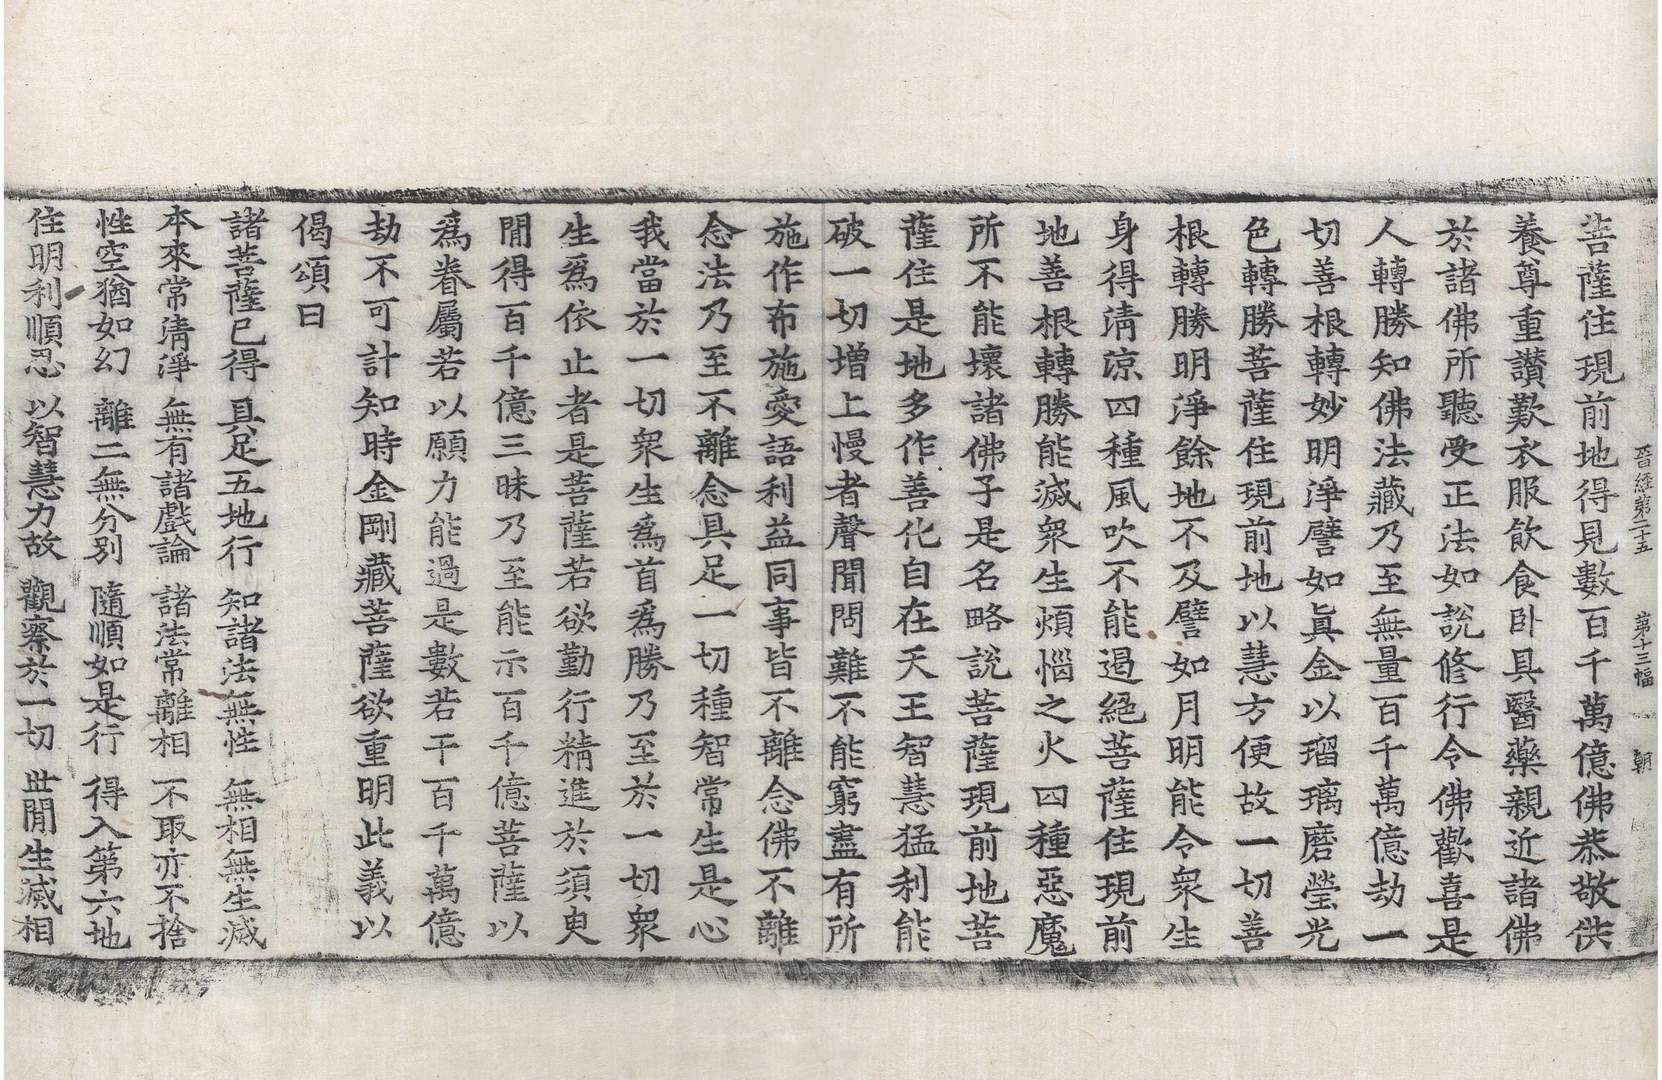 晉經第二十五　第十三幅　朝
菩薩住現前地得見數百千萬億佛恭敬供
養尊重讃歎衣服飲食卧具醫藥親近諸佛
於諸佛所聽受正法如說修行令佛歡喜是
人轉勝知佛法藏乃至無量百千萬億劫一
切善根轉妙明淨譬如眞金以瑠璃磨瑩光
色轉勝菩薩住現前地以慧方便故一切善
根轉勝明淨餘地不及譬如月明能令衆生
身得清涼四種風吹不能過絕菩薩住現前
地善根轉勝能滅衆生煩惱之火四種惡魔
所不能壞諸佛子是名略說菩薩現前地菩
薩住是地多作善化自在天王智慧猛利能
破一切増上慢者聲聞問難不能窮盡有所
施作布施愛語利益同事皆不離念佛不離
念法乃至不離念具足一切種智常生是心
我當於一切衆生爲首爲勝乃至於一切衆
生爲依止者是菩薩若欲勤行精進於須臾
閒得百千億三昧乃至能示百千億菩薩以
爲眷屬若以願力能過是數若干百千萬億
劫不可計知時金剛藏菩薩欲重明此義以
偈頌曰
諸菩薩已得　具足五地行　知諸法無性　無相無生滅
本來常清淨　無有諸戲論　諸法常離相　不取亦不捨
性空猶如幻　離二無分別　隨順如是行　得入第六地
住明利順忍　以智慧力故　觀察於一切　世閒生滅相